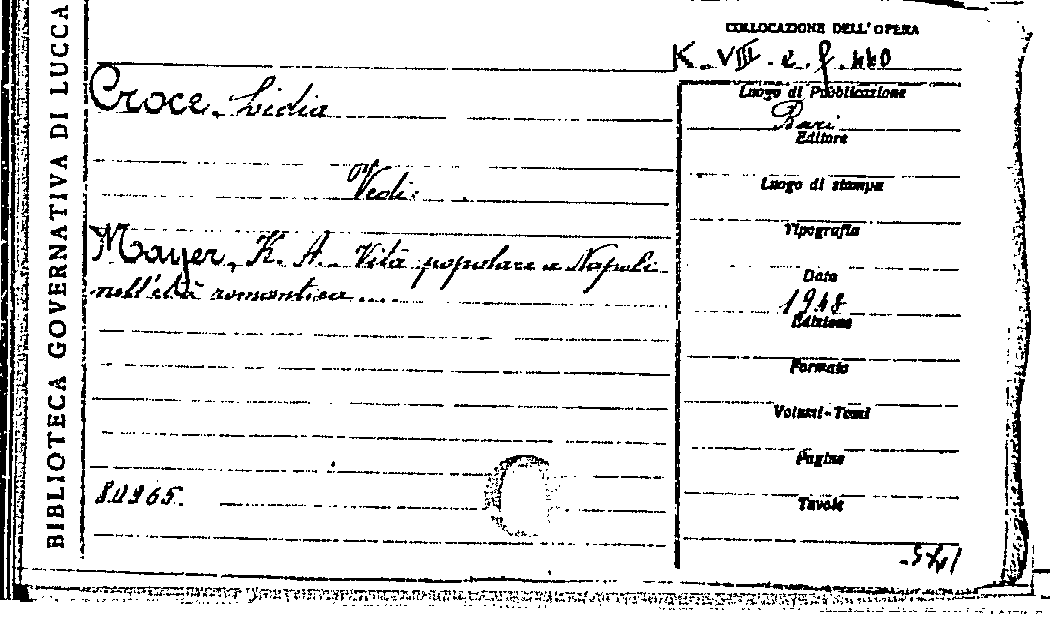 BIBLIOTECA GOVERNATIVA DI LUCCA
COLLOCAZIONE DELL'OPERA
K. VIII. e. f. 440
Croce, Lidia
Vedi:
Mayer, K. A. Vita popolare a Napoli
nell'età romantica ....
80965.
Luogo di Pubblicazione
Bari
Editore
Luogo di stampa
Tipografia
Data
1948
Edizione
Formato
Volumi-Tomi
Pagine
Tavole